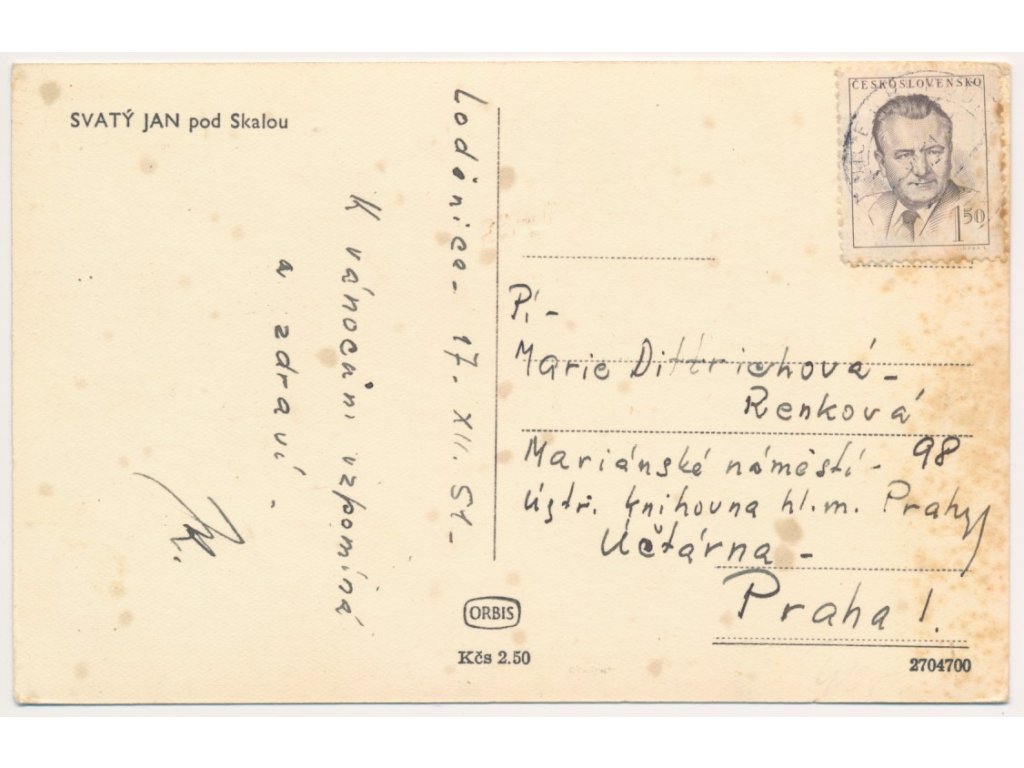 SVATÝ JAN pod Skalou
Loděnice - 17. XII. 51 -
K vánocům vzpomíná
a zdraví.
ČESKOSLOVENSKO
1 50
Pí -
Marie Dittrichová -
Renková
Mariánské náměstí - 98
Ústř. knihovna hl. m. Prahy
Účtárna -
Praha 1.
ORBIS
Kčs 2.50
2704700